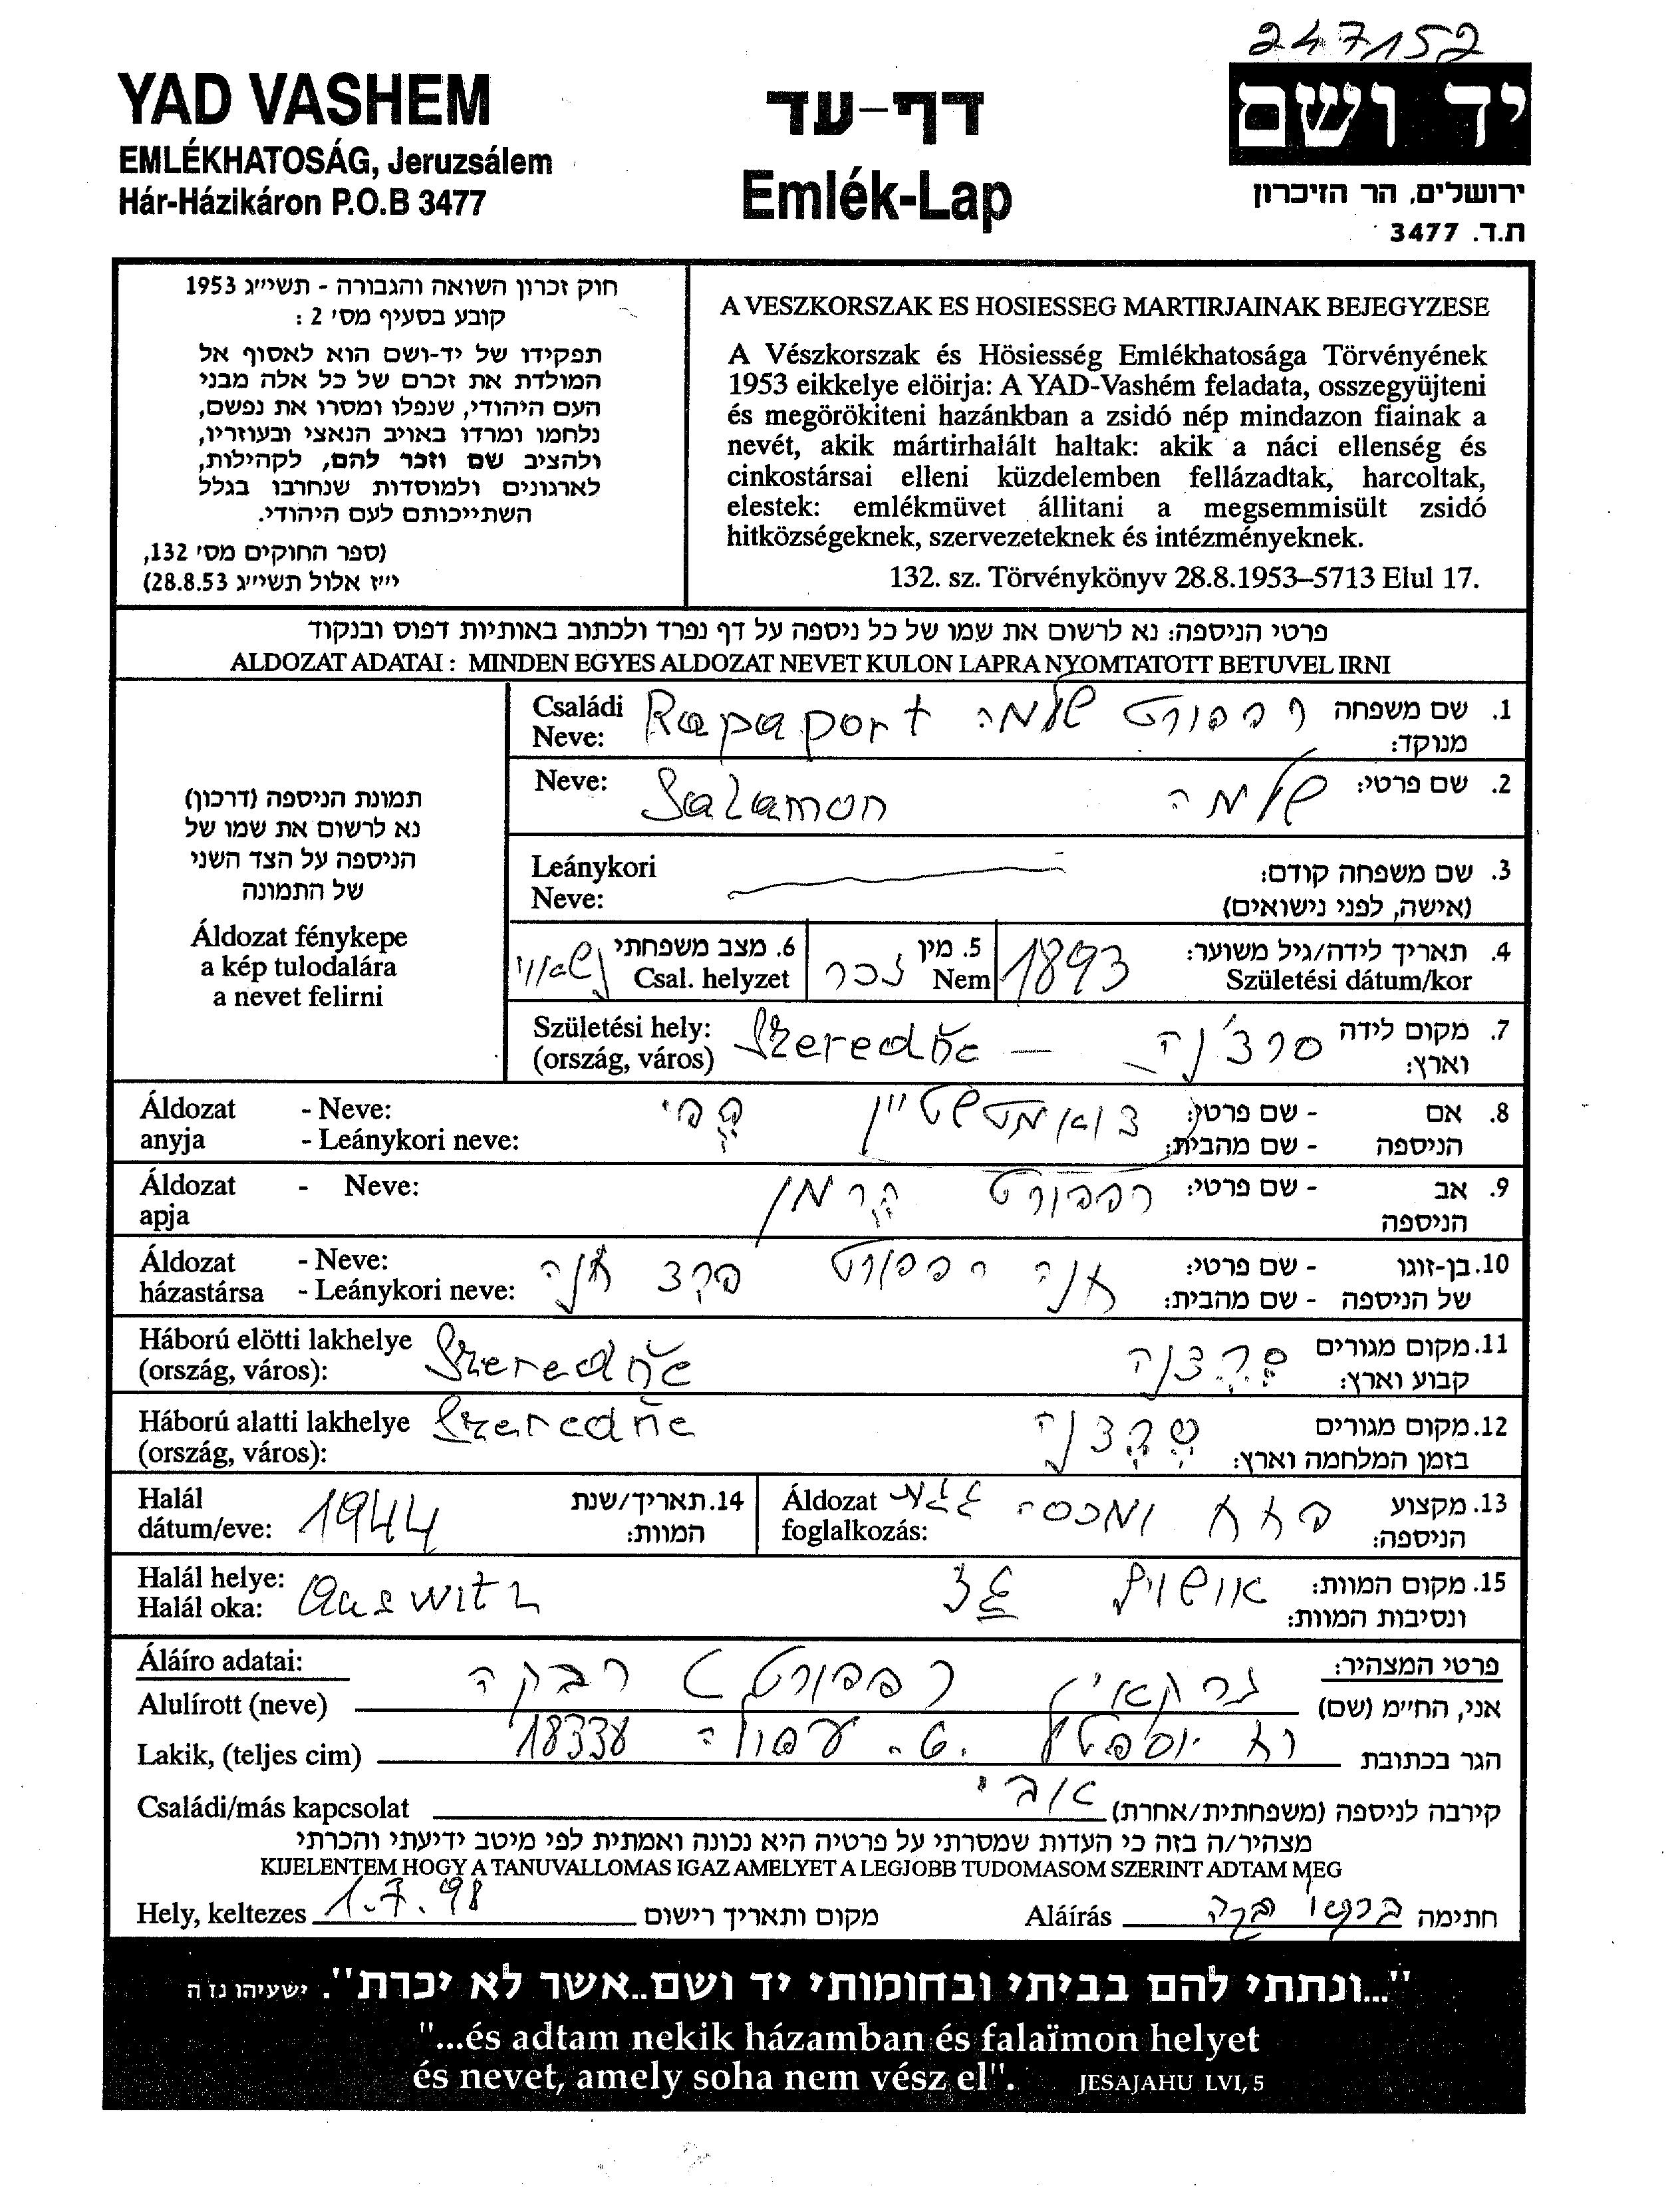 247152
YAD VASHEM
EMLÉKHATOSÁG, Jeruzsálem
Hár-Házikáron P.O.B 3477
דף-עד
Emlék-Lap
יד ושם
ירושלים, הר הזיכרון
ת.ד. 3477
חוק זכרון השואה והגבורה - תשי״ג 1953
קובע בסעיף מס׳ 2 :
תפקידו של יד-ושם הוא לאסוף אל
המולדת את זכרם של כל אלה מבני
העם היהודי, שנפלו ומסרו את נפשם,
נלחמו ומרדו באויב הנאצי ובעוזריו,
ולהציב שם וזכר להם, לקהילות,
לארגונים ולמוסדות שנחרבו בגלל
השתייכותם לעם היהודי.
(ספר החוקים מס׳ 132,
י״ז אלול תשי״ג 28.8.53)
A VESZKORSZAK ES HOSIESSEG MARTIRJAINAK BEJEGYZESE
A Vészkorszak és Hösiesség Emlékhatosága Törvényének
1953 eikkelye elöirja: A YAD-Vashém feladata, osszegyüjteni
és megörökiteni hazánkban a zsidó nép mindazon fiainak a
nevét, akik mártirhalált haltak: akik a náci ellenség és
cinkostársai elleni küzdelemben fellázadtak, harcoltak,
elestek: emlékmüvet állitani a megsemmisült zsidó
hitközségeknek, szervezeteknek és intézményeknek.
132. sz. Törvénykönyv 28.8.1953–5713 Elul 17.
פרטי הניספה: נא לרשום את שמו של כל ניספה על דף נפרד ולכתוב באותיות דפוס ובנקוד
ALDOZAT ADATAI : MINDEN EGYES ALDOZAT NEVET KULON LAPRA NYOMTATOTT BETUVEL IRNI
תמונת הניספה (דרכון)
נא לרשום את שמו של
הניספה על הצד השני
של התמונה
Áldozat fénykepe
a kép tulodalára
a nevet felirni
Családi Neve: Rapaport רפפורט שלמה 1. שם משפחה מנוקד:
Neve: Salamon שלמה 2. שם פרטי:
Leánykori Neve: 3. שם משפחה קודם: (אישה, לפני נישואים)
4. תאריך לידה/גיל משוער: Születési dátum/kor 1893 5. מין Nem זכר 6. מצב משפחתי Csal. helyzet נשאוי
Születési hely: (ország, város) Szeredňe – סרצ'נה 7. מקום לידה וארץ:
Áldozat anyja - Neve: - Leánykori neve: 8. אם הניספה - שם פרטי: - שם מהבית:
Áldozat apja - Neve: רפפורט הרמן 9. אב הניספה - שם פרטי:
Áldozat házastársa - Neve: - Leánykori neve: אנה רפפורט פרצ אנה 10. בן-זוגו של הניספה - שם פרטי: - שם מהבית:
Háború elötti lakhelye (ország, város): Szeredňe סרצנה 11. מקום מגורים קבוע וארץ:
Háború alatti lakhelye (ország, város): Szeredňe סרצנה 12. מקום מגורים בזמן המלחמה וארץ:
Halál dátum/eve: 1944 14. תאריך/שנת המוות:
Áldozat foglalkozás: פחח ומכסה גגות 13. מקצוע הניספה:
Halál helye: Halál oka: Auswith אושויץ 15. מקום המוות: ונסיבות המוות:
Áláíro adatai: פרטי המצהיר:
Alulírott (neve) רפפורט רבקה אני, החי״מ (שם)
Lakik, (teljes cim) 18338 עפולה הגר בכתובת
Családi/más kapcsolat אבי קירבה לניספה (משפחתית/אחרת)
מצהיר/ה בזה כי העדות שמסרתי על פרטיה היא נכונה ואמתית לפי מיטב ידיעתי והכרתי
KIJELENTEM HOGY A TANUVALLOMAS IGAZ AMELYET A LEGJOBB TUDOMASOM SZERINT ADTAM MEG
Hely, keltezes 1.7.98 מקום ותאריך רישום Aláírás חתימה
"...ונתתי להם בביתי ובחומותי יד ושם..אשר לא יכרת". ישעיהו נז ה
"...és adtam nekik házamban és falaïmon helyet
és nevet, amely soha nem vész el". JESAJAHU LVI, 5